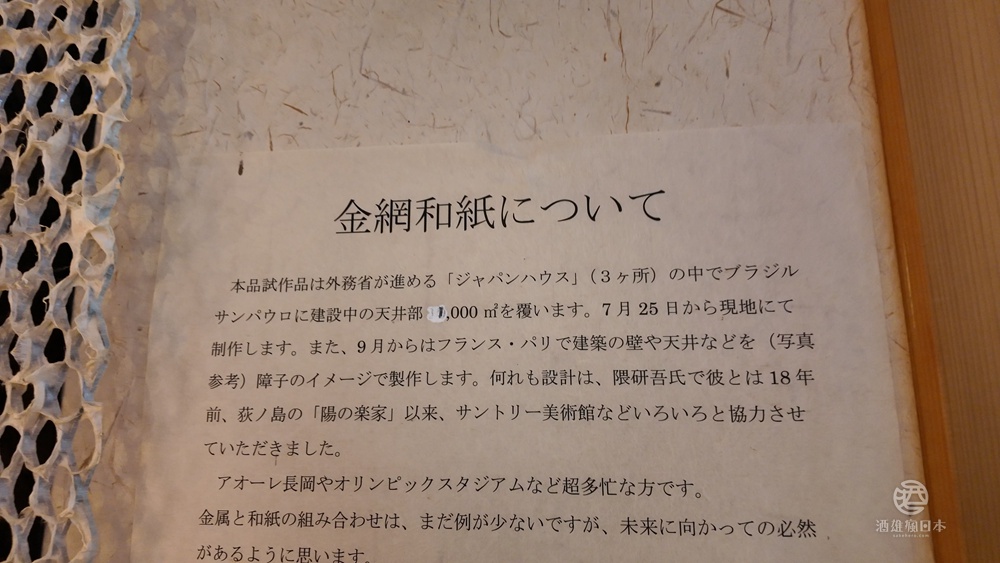 金網和紙について
本品試作品は外務省が進める「ジャパンハウス」(3ヶ所)の中でブラジル
サンパウロに建設中の天井部1,000㎡を覆います。7月25日から現地にて
制作します。また、9月からはフランス・パリで建築の壁や天井などを(写真
参考)障子のイメージで製作します。何れも設計は、隈研吾氏で彼とは18年
前、荻ノ島の「陽の楽家」以来、サントリー美術館などいろいろと協力させ
ていただきました。
アオーレ長岡やオリンピックスタジアムなど超多忙な方です。
金属と和紙の組み合わせは、まだ例が少ないですが、未来に向かっての必然
があるように思います。
酒雄樷日本